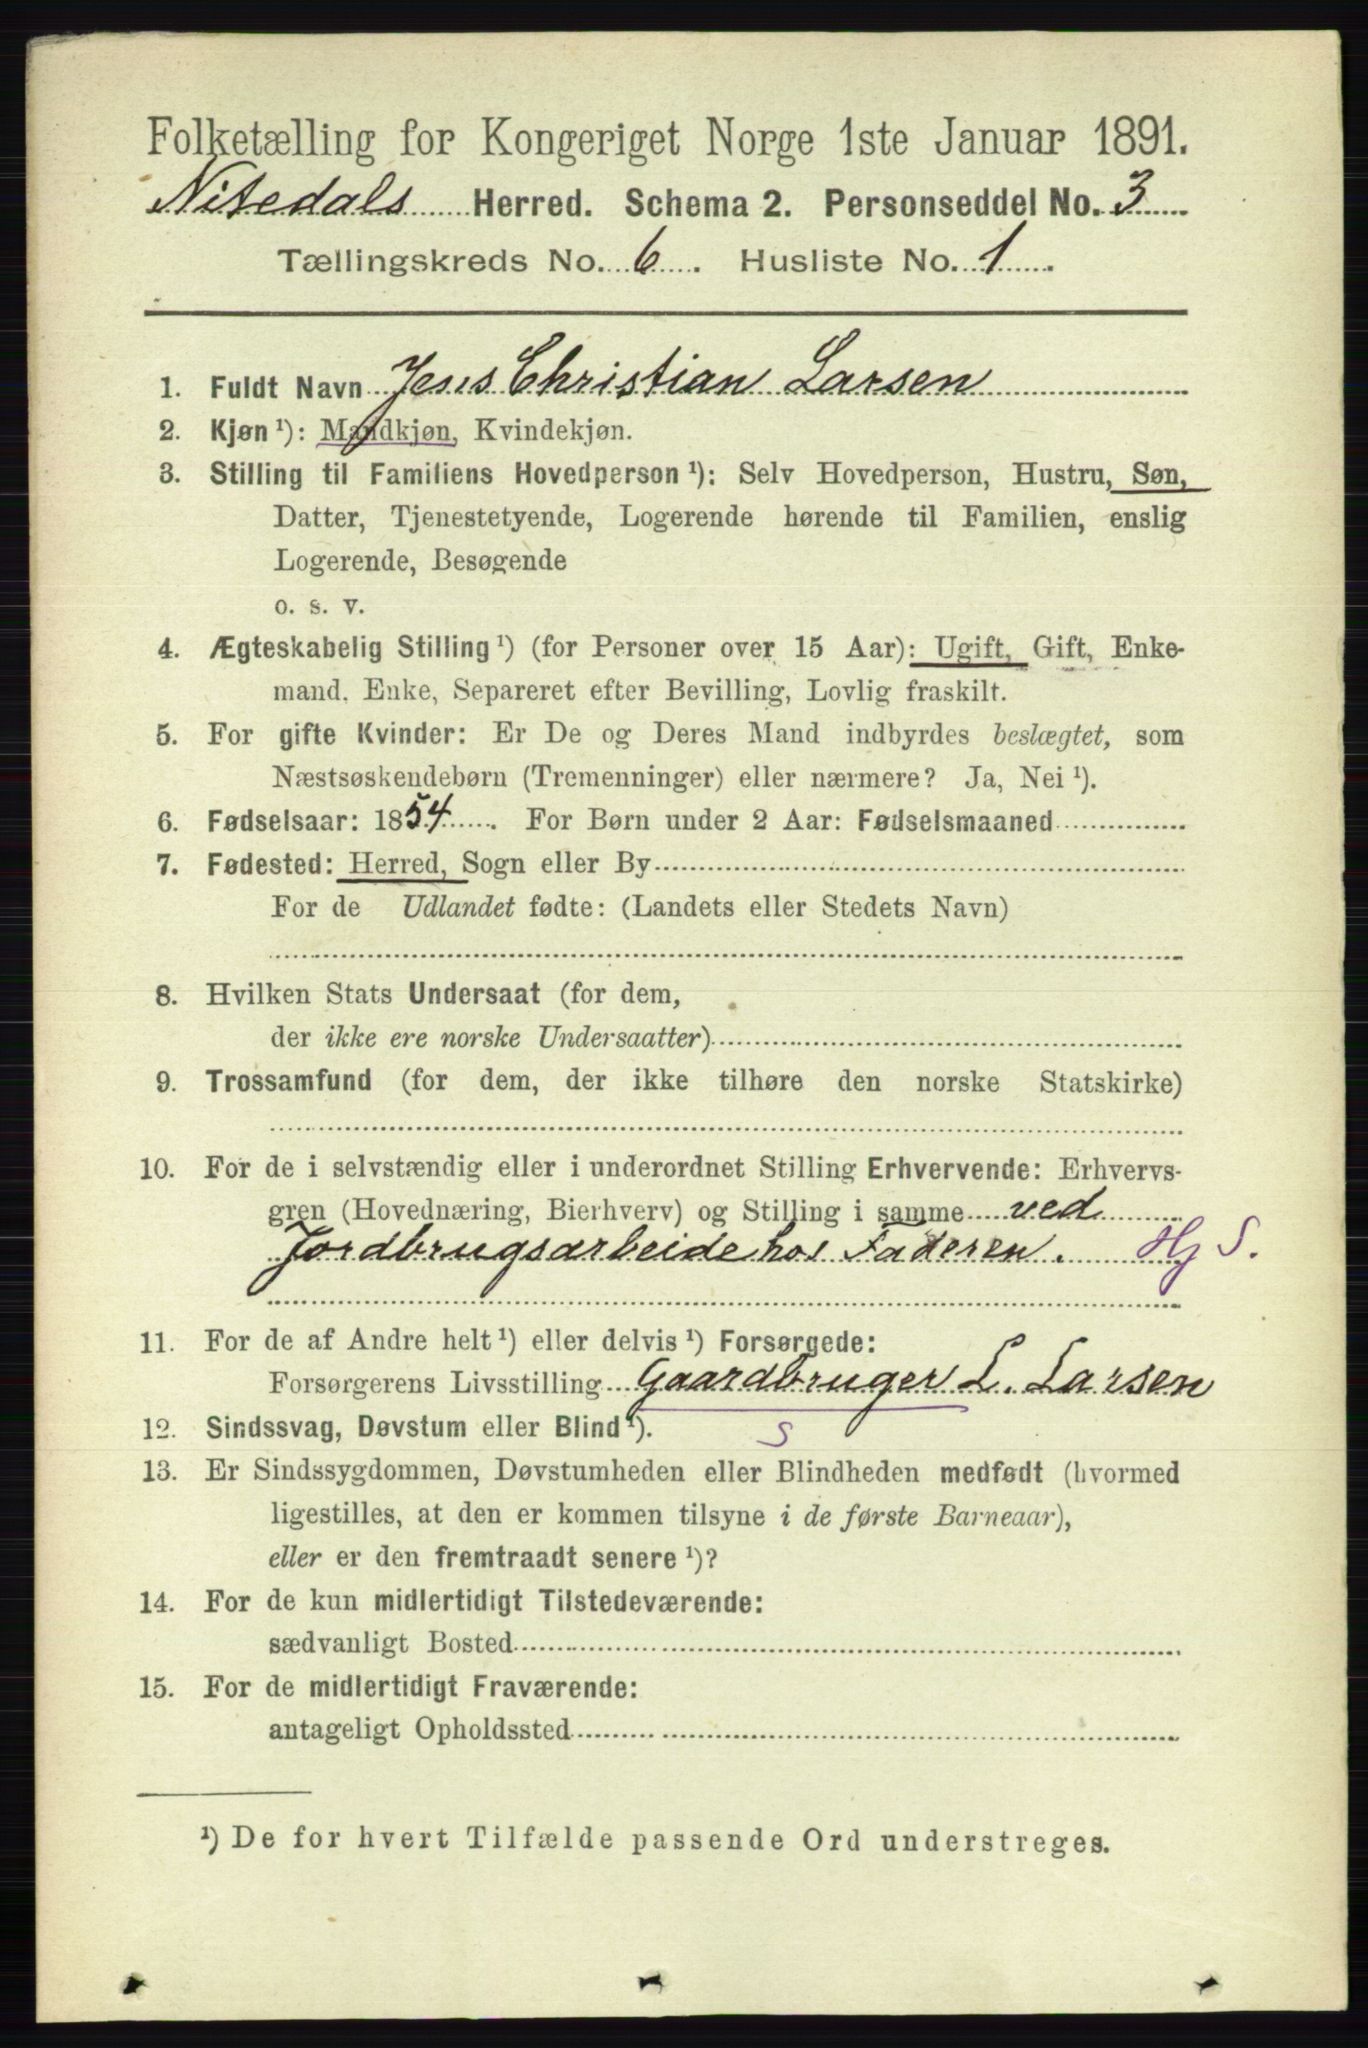 Folketælling for Kongeriget Norge 1ste Januar 1891.
Nitedals Herred. Schema 2. Personseddel No. 3
Tællingskreds No. 6. Husliste No. 1.
1. Fuldt Navn Jens Christian Larsen
2. Kjøn ¹): Mandkjøn, Kvindekjøn.
3. Stilling til Familiens Hovedperson ¹): Selv Hovedperson, Hustru, Søn,
Datter, Tjenestetyende, Logerende hørende til Familien, enslig
Logerende, Besøgende
o. s. v.
4. Ægteskabelig Stilling ¹) (for Personer over 15 Aar): Ugift, Gift, Enke-
mand, Enke, Separeret efter Bevilling, Lovlig fraskilt.
5. For gifte Kvinder: Er De og Deres Mand indbyrdes beslægtet, som
Næstsøskendebørn (Tremenninger) eller nærmere? Ja, Nei ¹).
6. Fødselsaar: 1854. For Børn under 2 Aar: Fødselsmaaned
7. Fødested: Herred, Sogn eller By
For de Udlandet fødte: (Landets eller Stedets Navn)
8. Hvilken Stats Undersaat (for dem,
der ikke ere norske Undersaatter)
9. Trossamfund (for dem, der ikke tilhøre den norske Statskirke)
10. For de i selvstændig eller i underordnet Stilling Erhvervende: Erhvervs-
gren (Hovednæring, Bierhverv) og Stilling i samme ved
Jordbrugsarbeide hos Faderen. Hj S.
11. For de af Andre helt ¹) eller delvis ¹) Forsørgede:
Forsørgerens Livsstilling Gaardbruger L. Larsen
S
12. Sindssvag, Døvstum eller Blind ¹).
13. Er Sindssygdommen, Døvstumheden eller Blindheden medfødt (hvormed
ligestilles, at den er kommen tilsyne i de første Barneaar),
eller er den fremtraadt senere ¹)?
14. For de kun midlertidigt Tilstedeværende:
sædvanligt Bosted
15. For de midlertidigt Fraværende:
antageligt Opholdssted
¹) De for hvert Tilfælde passende Ord understreges.